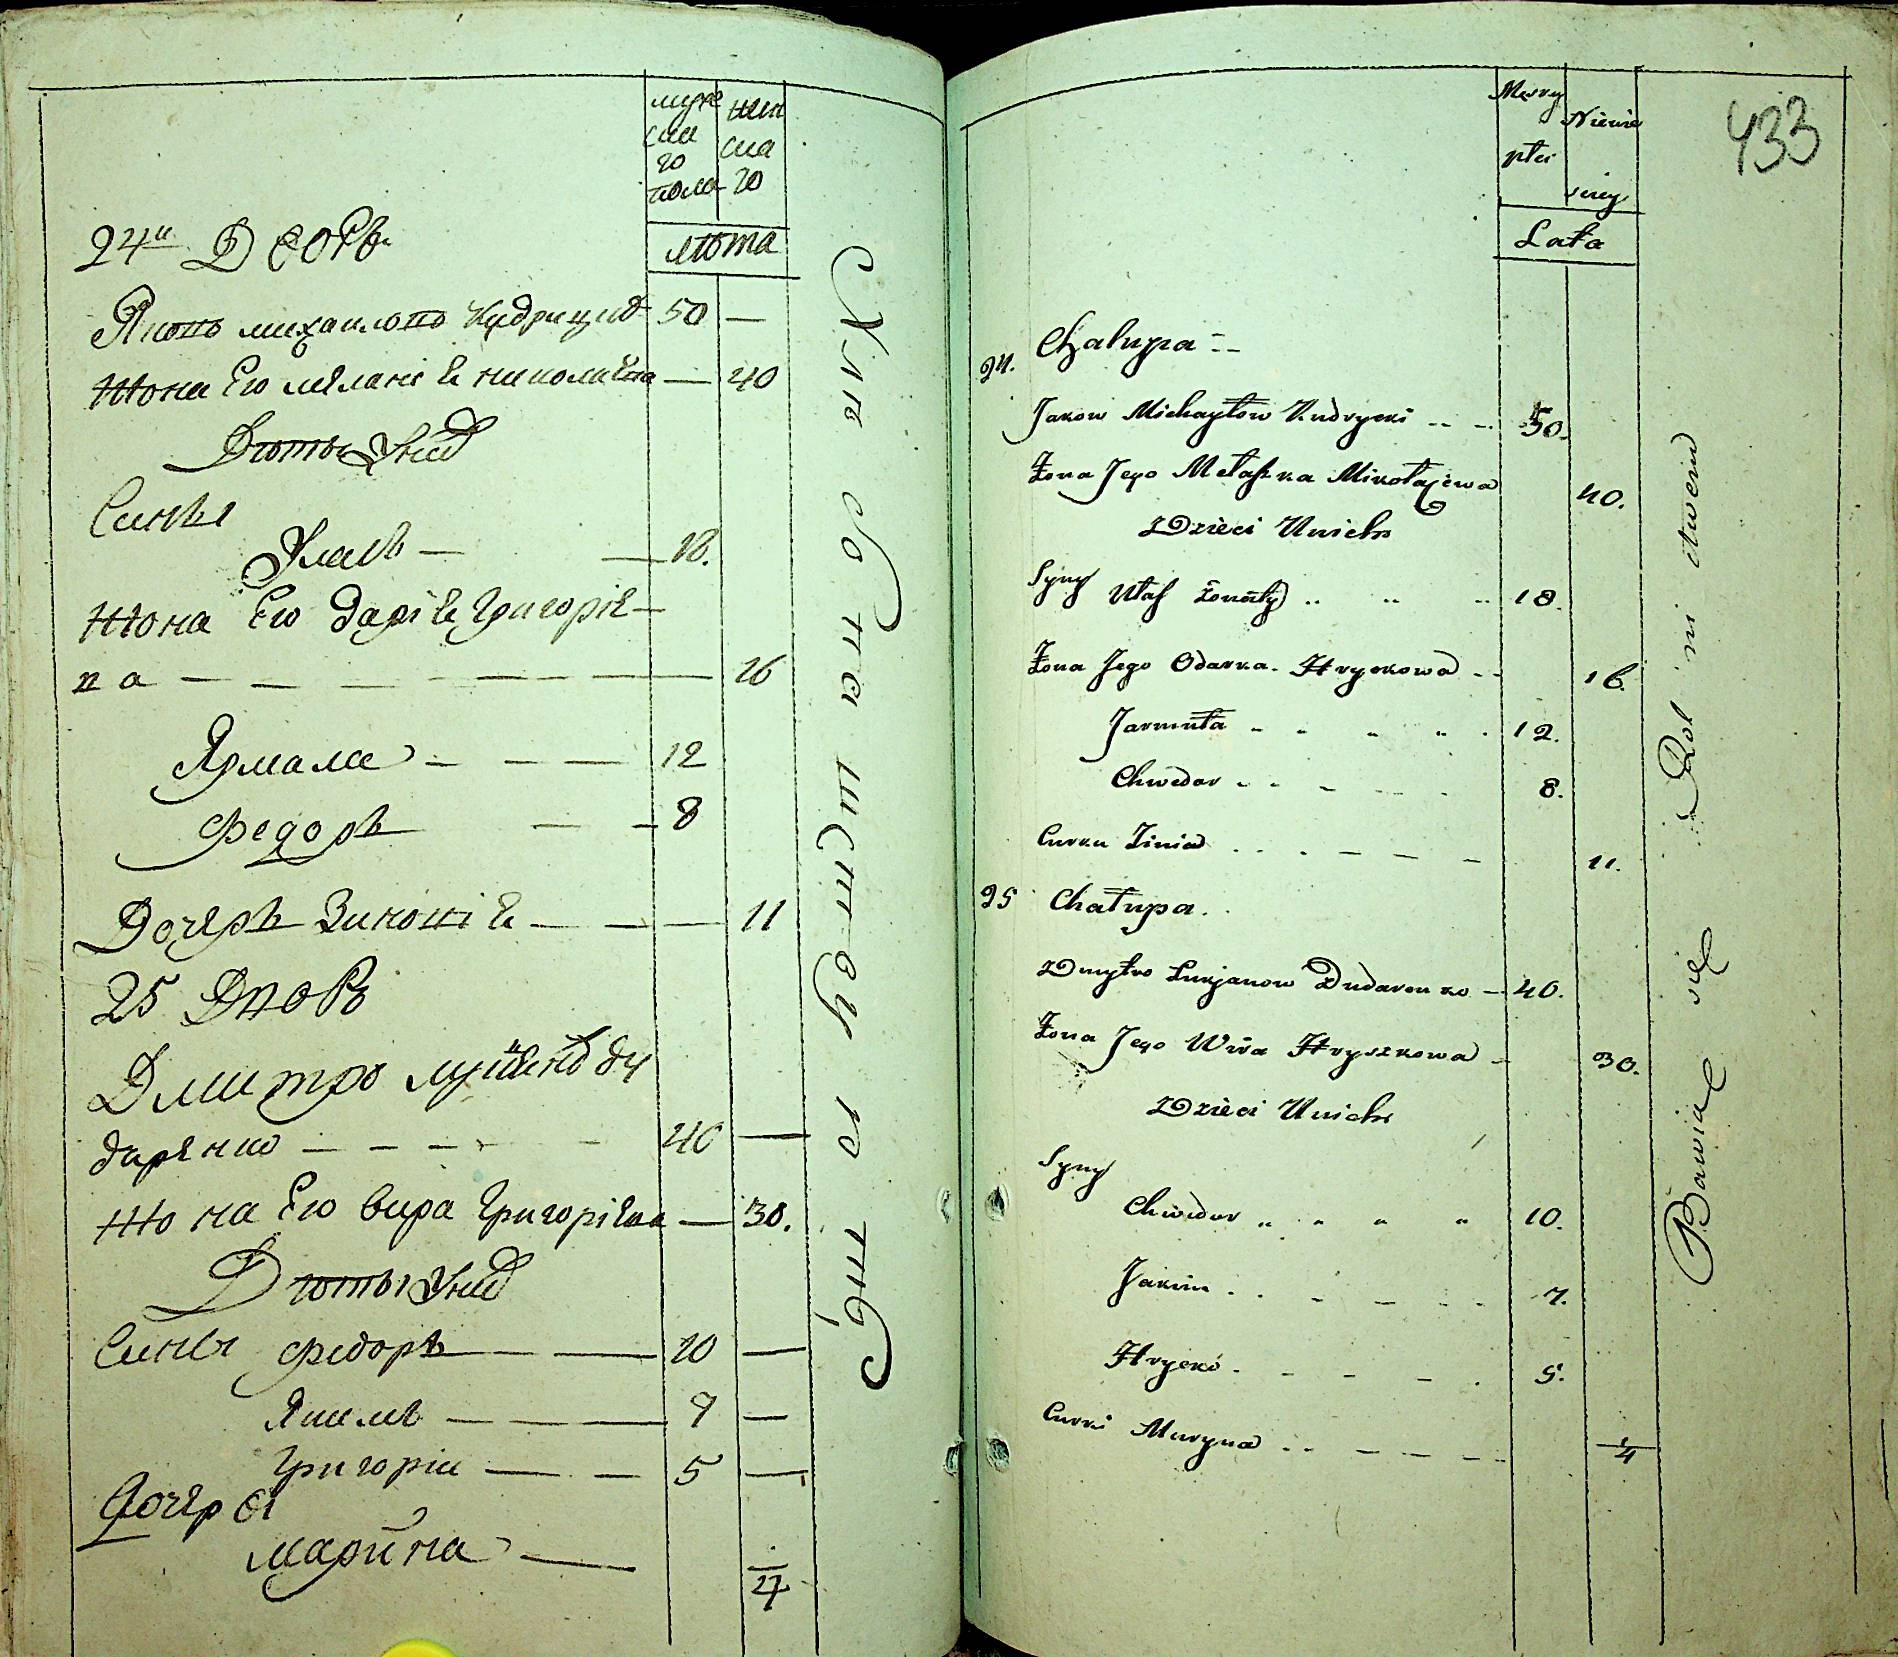 муже жен
ска ска
го го
пола
24й Дворъ
лѣта
Яковъ михаиловъ Кудрицкий 50 —
жона Его меланиѣ николаѣва — 40
Дѣты Ѹних
Сины
Ѹласъ — — 18.
жона Его дариѣ григоріѣ—
ва — — — — — — — 16
Ярмала — — — 12
Федоръ — — 8
Дочеръ Зиновиѣ — — — 11
25 Дворъ
Дмитро ду
даренко — — — — 40 —
жона Его вира григоріѣва — 30.
Дѣты Ѹних
Сины Федоръ — — 10 —
Якимъ — — — 7 —
Григорій — — 5 —
Дочеры
марина — 4
Хлѣбопашествуютъ
433
Męzsy Niewie
płci sciey
Lata
24. Chałupa
Jakow Michayłow Kudrycki .. .. 50.
Żona Jego Małaszka Mikołajewa 40.
Dzieci Unich
Syny Ułas żonaty .. .. .. 18.
Żona Jego Odarka Hryckowa .. 16.
Jarmuła .. .. .. .. 12.
Chwedor .. .. .. 8.
Curka Zinia . . . — — — 11.
25 Chałupa.
Dmytro Łukjanow Dudarenko — 40.
Żona Jego Wira Hryszkowa — 30.
Dzieci Unich
Syny
Chwedor .. .. .. .. 10.
Jakim . . . — . . 7.
Hrycko . — — — . 5.
Curki Maryna .. — — — .. 4
Bawią się Rolnictwem